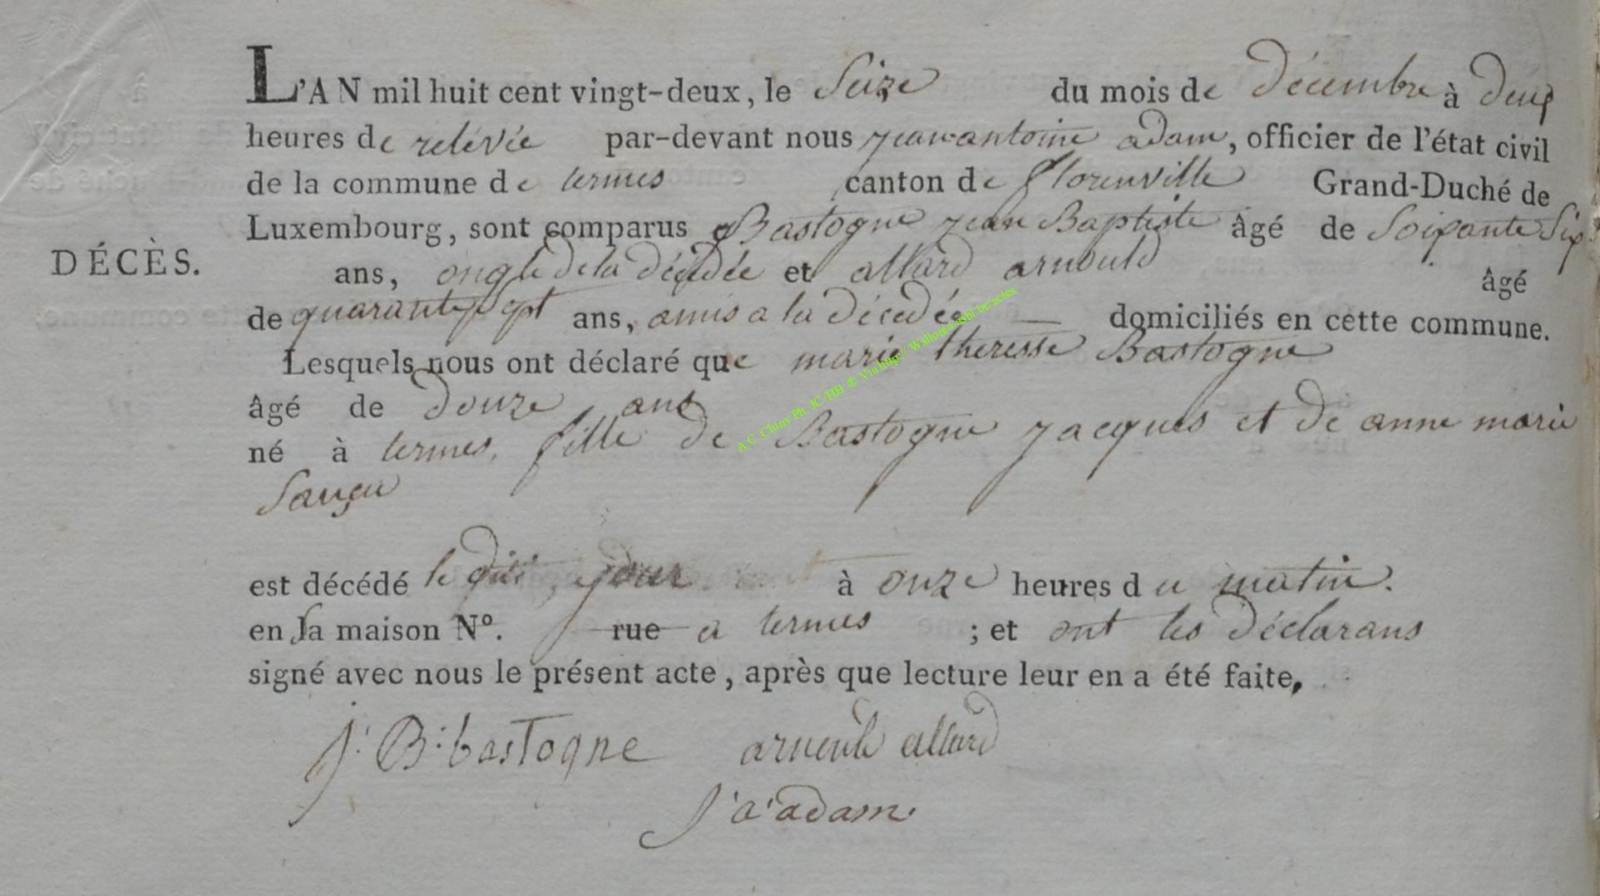 L'AN mil huit cent vingt-deux, le Seize du mois de décembre à deux
heures de relévée par-devant nous jean antoine adam, officier de l'état civil
de la commune de termes canton de florenville Grand-Duché de
Luxembourg, sont comparus Bastogne jean Baptiste âgé de Soixante Six
DÉCÈS.
ans, ongle de la décédée et allard arnould âgé
de quarante sept ans, amis a la décedée domiciliés en cette commune.
Lesquels nous ont déclaré que marie theresse Bastogne
âgé de douze ans
né à termes, fille de Bastogne jacques et de anne marie
est décédé le dit jour à onze heures du matin.
en sa maison N°. rue a termes ; et ont les déclarans
signé avec nous le présent acte, après que lecture leur en a été faite,
j: B: bastogne arnould allard
j a adam